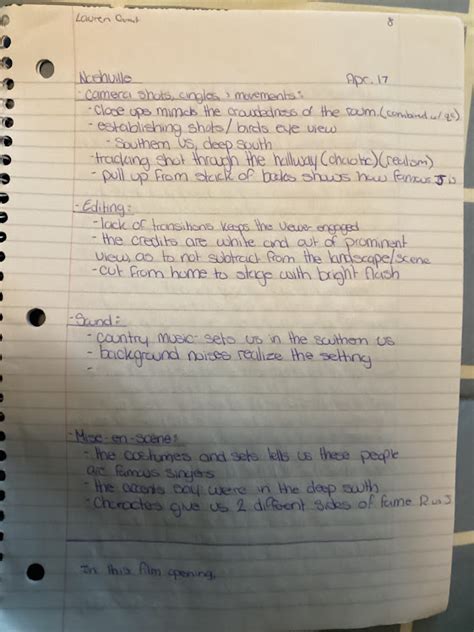 Lauren
8
Nashville Apr. 17
- Camera shots, angles, & movements:
- Close ups mimick the crowdedness of the room. (combined w/
- establishing shots/birds eye view
- Southern US, deep south
- tracking shot through the hallway (chaotic) (realism)
- pull up from stack of books shows how famous J is
- Editing:
- lack of transitions keeps the viewer engaged
- the credits are white and out of prominent
view, as to not subtract from the landscape/scene
- cut from home to stage with bright flash
- Sound:
- country music- sets us in the southern US
- background noises realize the setting
-
- Misc-en-scène:
- the costumes and sets tells us these people
are famous singers
- the accents say were in the deep south
- Characters give us 2 different sides of fame R vs J
In this film opening,